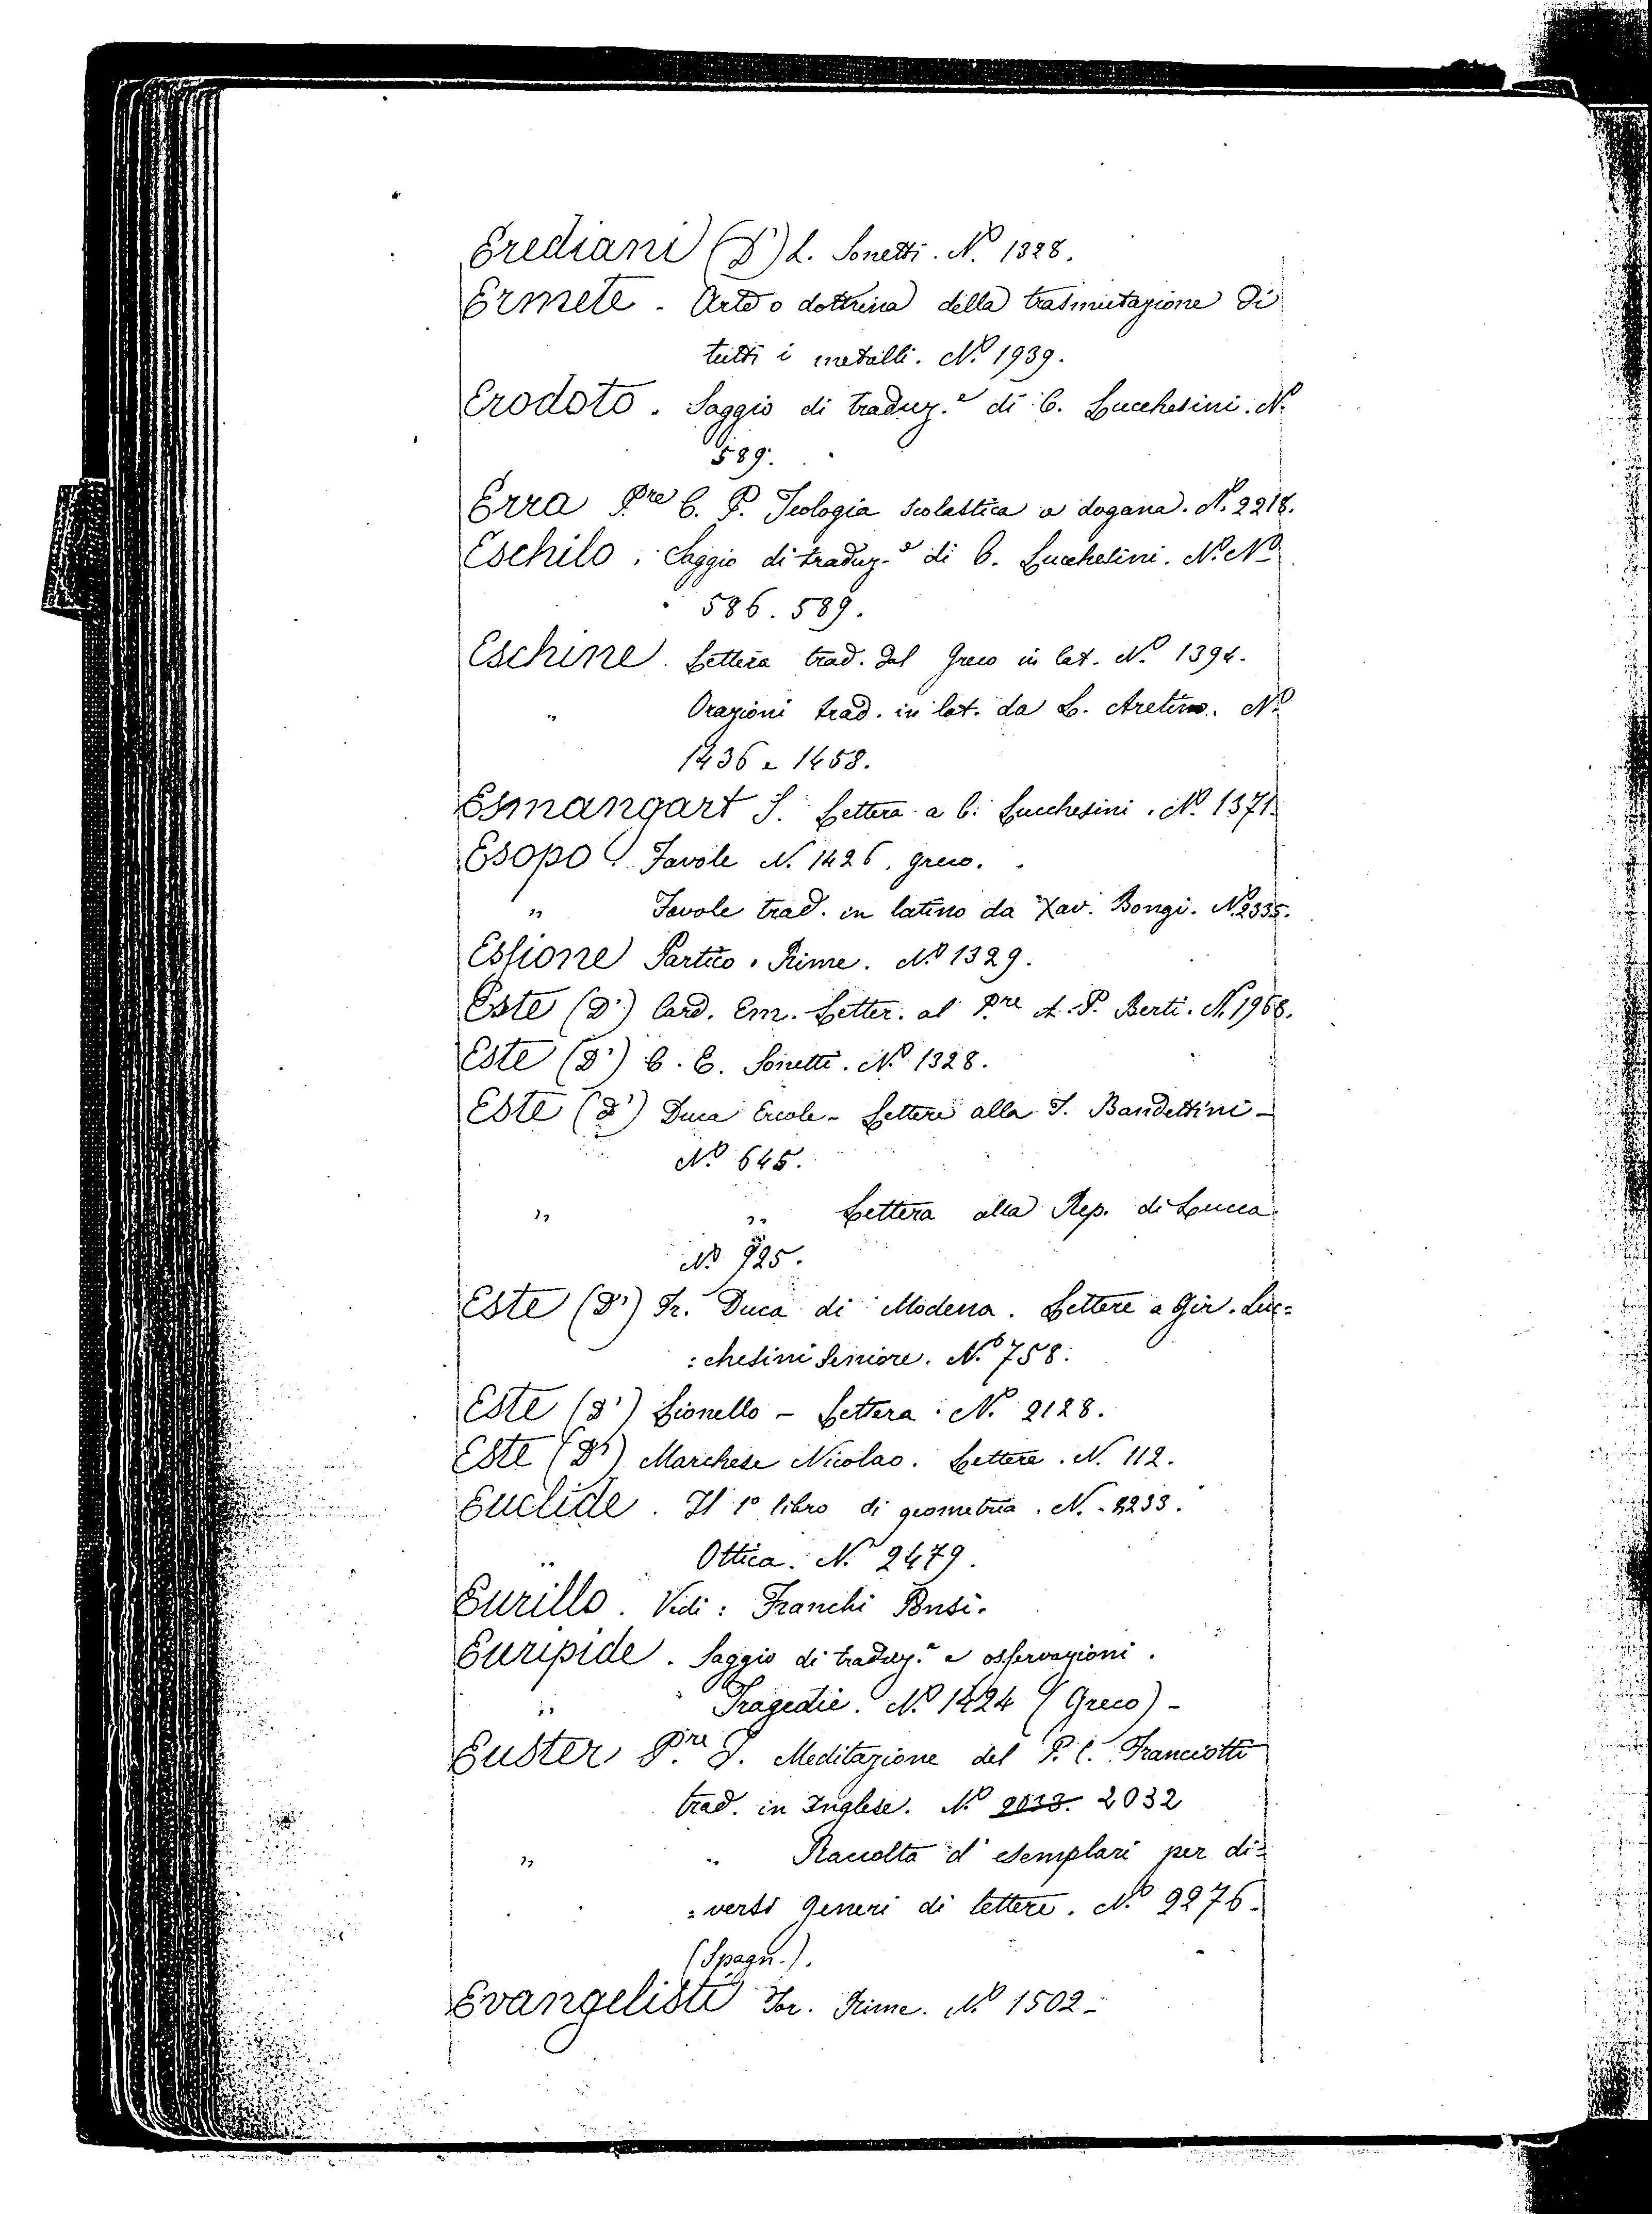 Erediani (D') L. Sonetti. N.º 1328.
Ermete - Arte o dottrina della trasmutazione di
tutti i metalli. N.º 1939.
Erodoto. Saggio di traduz.e di C. Lucchesini. N.
589.
Erra P.re C. P. Teologia scolastica e dogana. N. 2218.
Eschilo. Saggio di traduz.e di C. Lucchesini. N. Nº
586. 589.
Eschine. Lettera trad. dal Greco in lat. N.º 1394.
" Orazioni trad. in lat. da L. Aretino. Nº
1436 e 1458.
Esmangart S. Lettera a C. Lucchesini. Nº 1371.
Esopo. Favole N. 1426. greco.
" Favole trad. in latino da Xav. Bongi. N. 2335.
Essione Partico. Rime. Nº 1329.
Este (D') Card. Em. Letter. al P.re A. P. Berti. N. 1968.
Este (D') C. E. Sonetti. Nº 1328.
Este (D') Duca Ercole - Lettere alla T. Bandettini -
Nº 645.
" " Lettera alla Rep. di Lucca
Nº 925.
Este (D') Fr. Duca di Modena. Lettere a Gir. Luc=
:chesini Seniore. N.º 758.
Este (D') Lionello - Lettera. Nº 2128.
Este (D') Marchese Nicolao. Lettere. N. 112.
Euclide. Il 1º libro di geometria. N. 2233.
" Ottica. Nº 2479.
Eurillo. Vedi: Franchi Busi.
Euripide. Saggio di traduz.e e osservazioni.
" Tragedie. Nº 1424 (Greco) -
Euster P.re G. Meditazione del P. C. Franciotti
trad. in Inglese. Nº 2033. 2032
" " Raccolta d'esemplari per di=
=versi generi di lettere. Nº 2276.
(Spagn.).
Evangelisti Tor. Rime. Nº 1502-